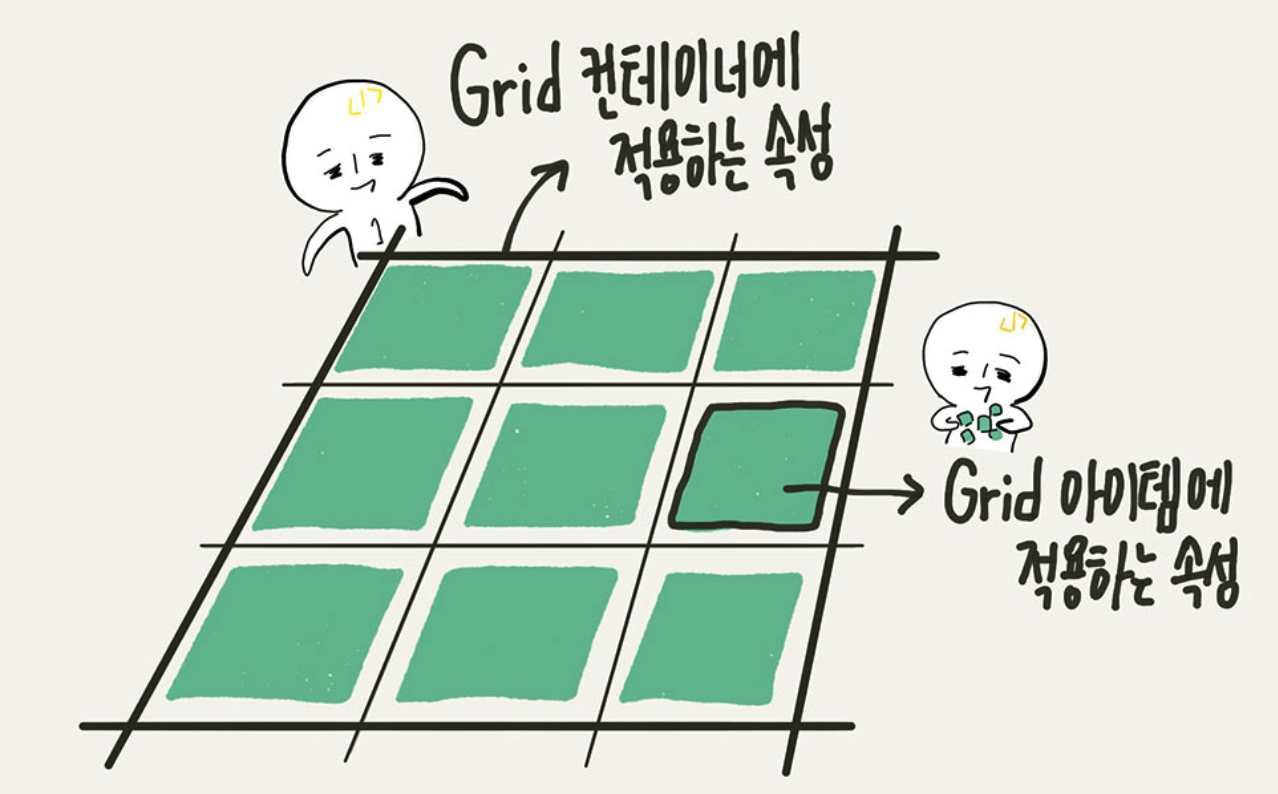 Grid 컨테이너에
적용하는 속성
Grid 아이템에
적용하는 속성